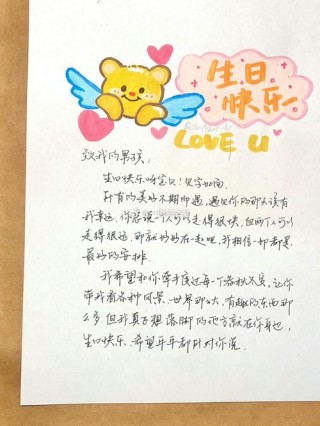 生日
快乐
LOVE U
致我的男孩：
生日快乐呀宝贝！见字如面。
所有的美好不期而遇，遇见你的那天该有
我幸运。你总说一个人可以走得很快，但两个人可以
走得很远，那就好好在一起吧，我相信一切都是
最好的安排。
我希望和你牵手度过每一个春秋冬夏，让你
带我看各种风景。世界那么大，有趣的东西那
么多，但我真正想落脚的地方就在你身边，
生日快乐，希望年年都能对你说。